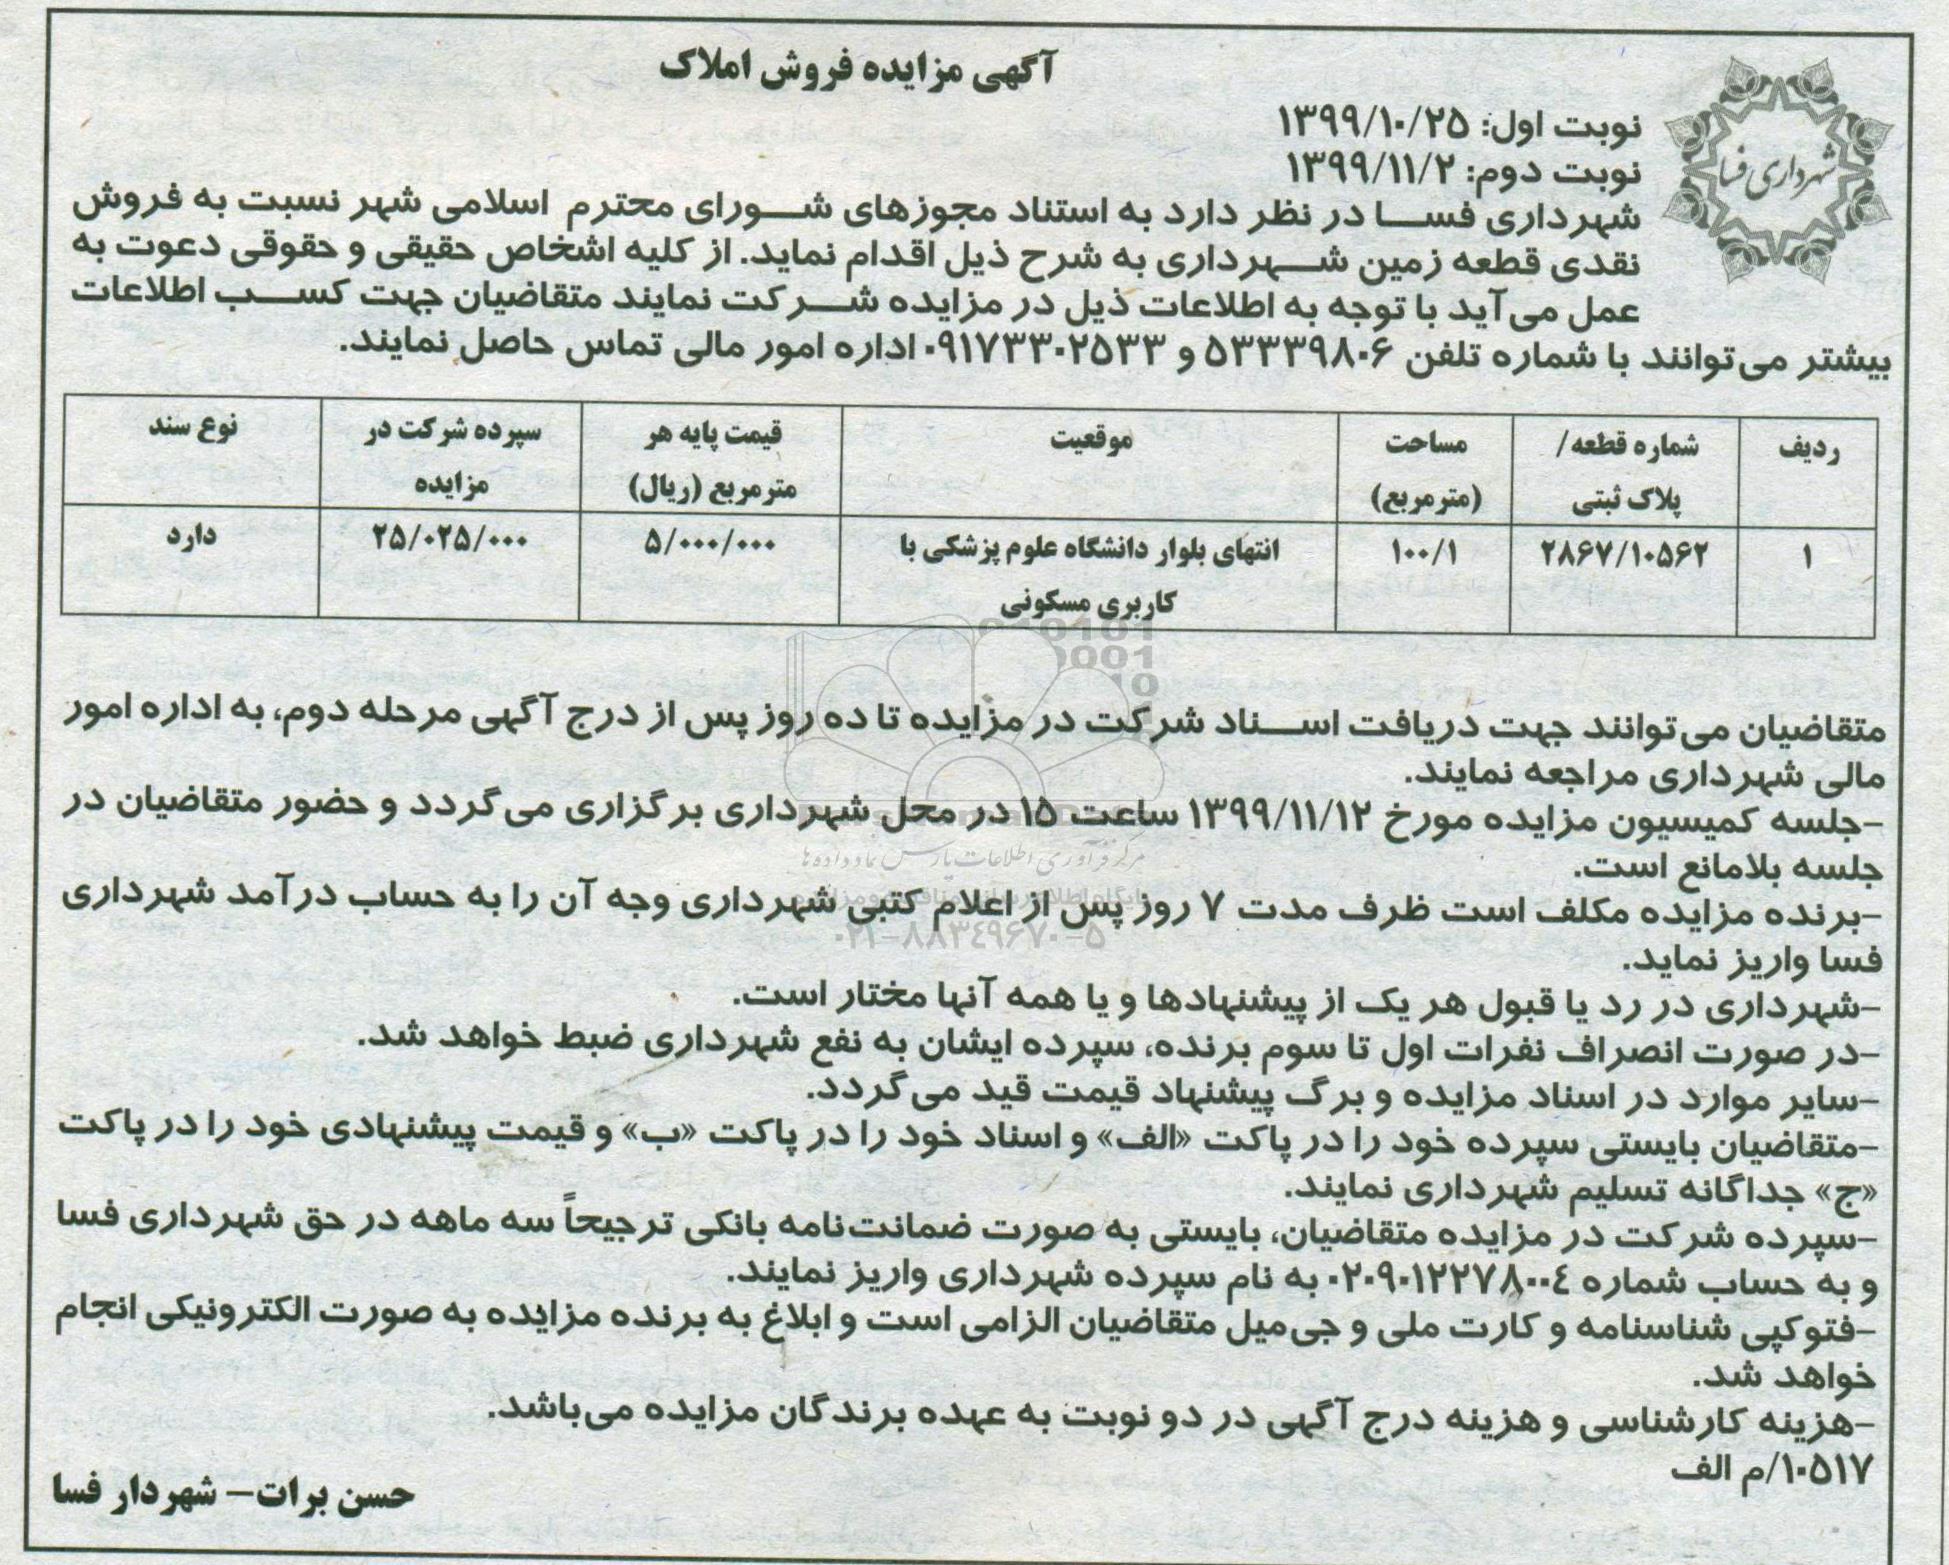 آگهی مزایده فروش املاک
شهرداری فسا
نوبت اول: ۱۳۹۹/۱۰/۲۵
نوبت دوم: ۱۳۹۹/۱۱/۲
شهرداری فسا در نظر دارد به استناد مجوزهای شورای محترم اسلامی شهر نسبت به فروش
نقدی قطعه زمین شهرداری به شرح ذیل اقدام نماید. از کلیه اشخاص حقیقی و حقوقی دعوت به
عمل می‌آید با توجه به اطلاعات ذیل در مزایده شرکت نمایند متقاضیان جهت کسب اطلاعات
بیشتر می‌توانند با شماره تلفن ۵۳۳۳۹۸۰۶ و ۰۹۱۷۳۳۰۲۵۳۳ اداره امور مالی تماس حاصل نمایند.
ردیف | شماره قطعه/ پلاک ثبتی | مساحت (مترمربع) | موقعیت | قیمت پایه هر مترمربع (ریال) | سپرده شرکت در مزایده | نوع سند
۱ | ۲۸۶۷/۱۰۵۶۲ | ۱۰۰/۱ | انتهای بلوار دانشگاه علوم پزشکی با کاربری مسکونی | ۵/۰۰۰/۰۰۰ | ۲۵/۰۲۵/۰۰۰ | دارد
متقاضیان می‌توانند جهت دریافت اسناد شرکت در مزایده تا ده روز پس از درج آگهی مرحله دوم، به اداره امور
مالی شهرداری مراجعه نمایند.
-جلسه کمیسیون مزایده مورخ ۱۳۹۹/۱۱/۱۲ ساعت ۱۵ در محل شهرداری برگزاری می‌گردد و حضور متقاضیان در
جلسه بلامانع است.
مرکز فرآوری اطلاعات پارس نماد داده‌ها
-برنده مزایده مکلف است ظرف مدت ۷ روز پس از اعلام کتبی شهرداری وجه آن را به حساب درآمد شهرداری
۰۲۱-۸۸۳۴۹۶۷۰-۵
فسا واریز نماید.
-شهرداری در رد یا قبول هر یک از پیشنهادها و یا همه آنها مختار است.
-در صورت انصراف نفرات اول تا سوم برنده، سپرده ایشان به نفع شهرداری ضبط خواهد شد.
-سایر موارد در اسناد مزایده و برگ پیشنهاد قیمت قید می‌گردد.
-متقاضیان بایستی سپرده خود را در پاکت «الف» و اسناد خود را در پاکت «ب» و قیمت پیشنهادی خود را در پاکت
«ج» جداگانه تسلیم شهرداری نمایند.
-سپرده شرکت در مزایده متقاضیان، بایستی به صورت ضمانت‌نامه بانکی ترجیحاً سه ماهه در حق شهرداری فسا
و به حساب شماره ۰۲۰۹۰۱۲۲۷۸۰۰۴ به نام سپرده شهرداری واریز نمایند.
-فتوکپی شناسنامه و کارت ملی و جی‌میل متقاضیان الزامی است و ابلاغ به برنده مزایده به صورت الکترونیکی انجام
خواهد شد.
-هزینه کارشناسی و هزینه درج آگهی در دو نوبت به عهده برندگان مزایده می‌باشد.
۱۰۵۱۷/م الف
حسن برات- شهردار فسا